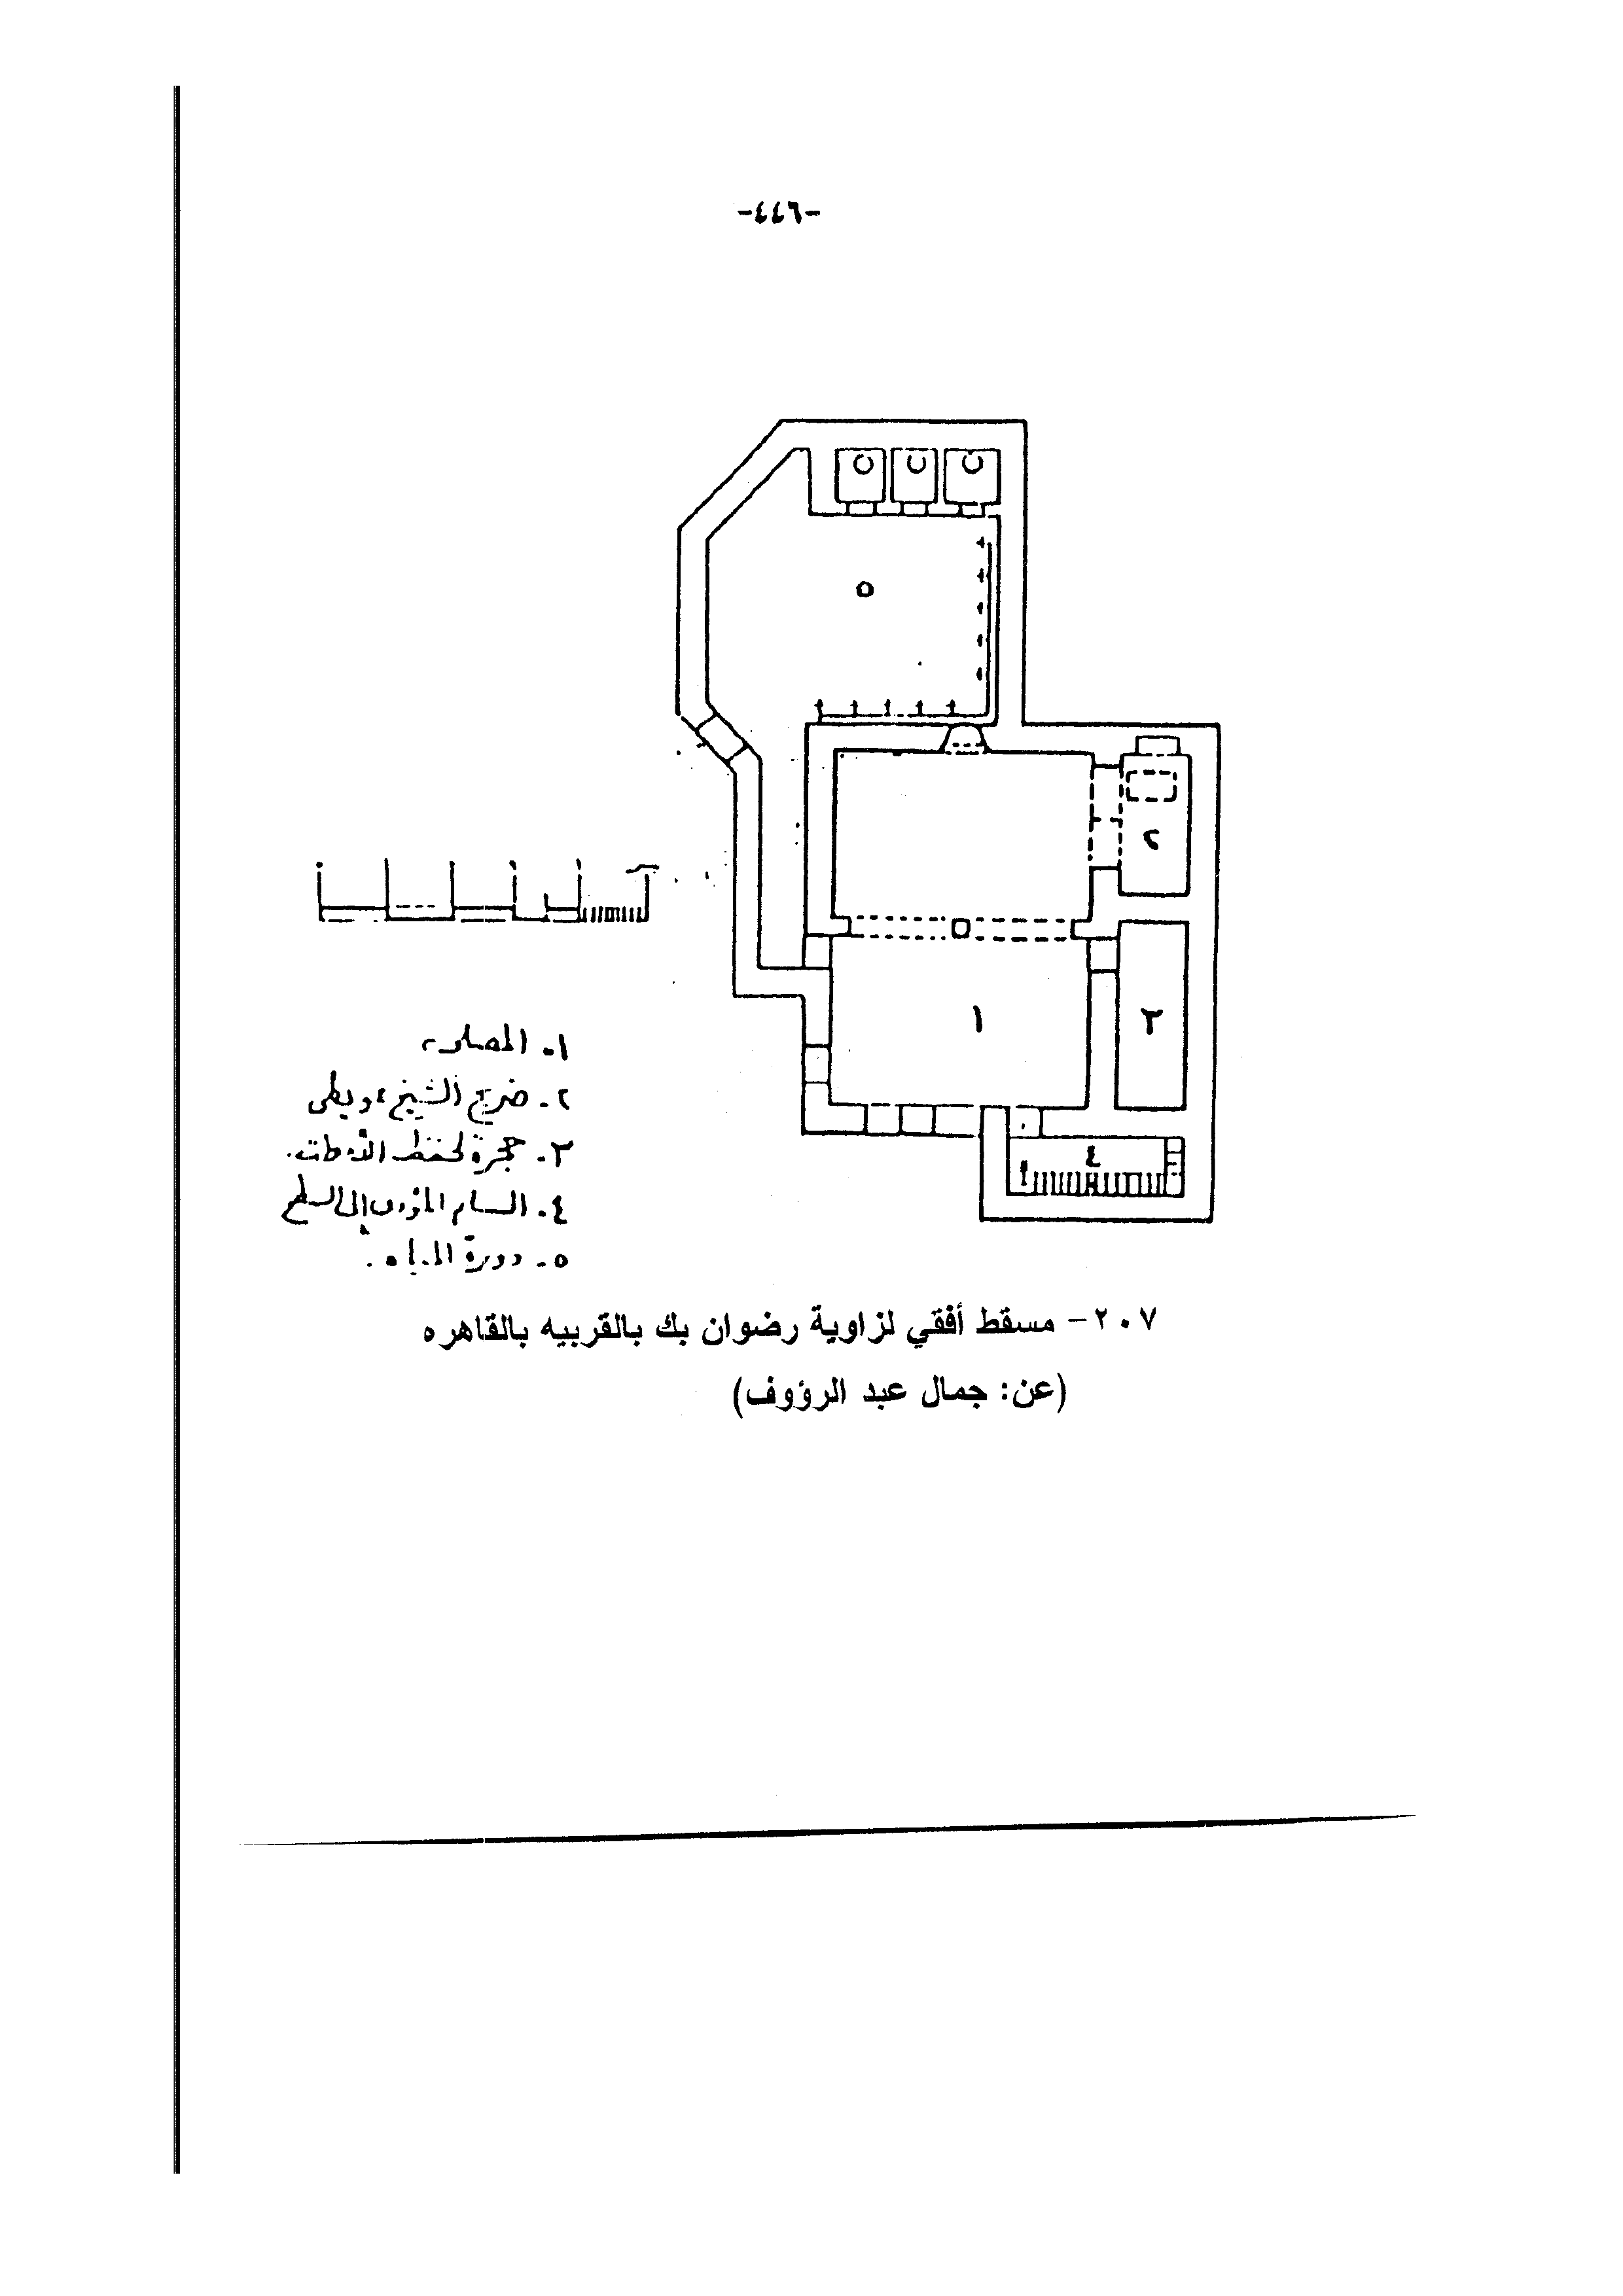 -٤٤٦-
٥
٢
١
٣
٤
١. المصلى
٢. ضريح الشيخ
٣. حجرة لحفظ
٤. السلم المؤدى إلى السطح
٥. دورة المياه.
٢٠٧- مسقط أفقي لزاوية رضوان بك بالقربيه بالقاهره
(عن: جمال عبد الرؤوف)